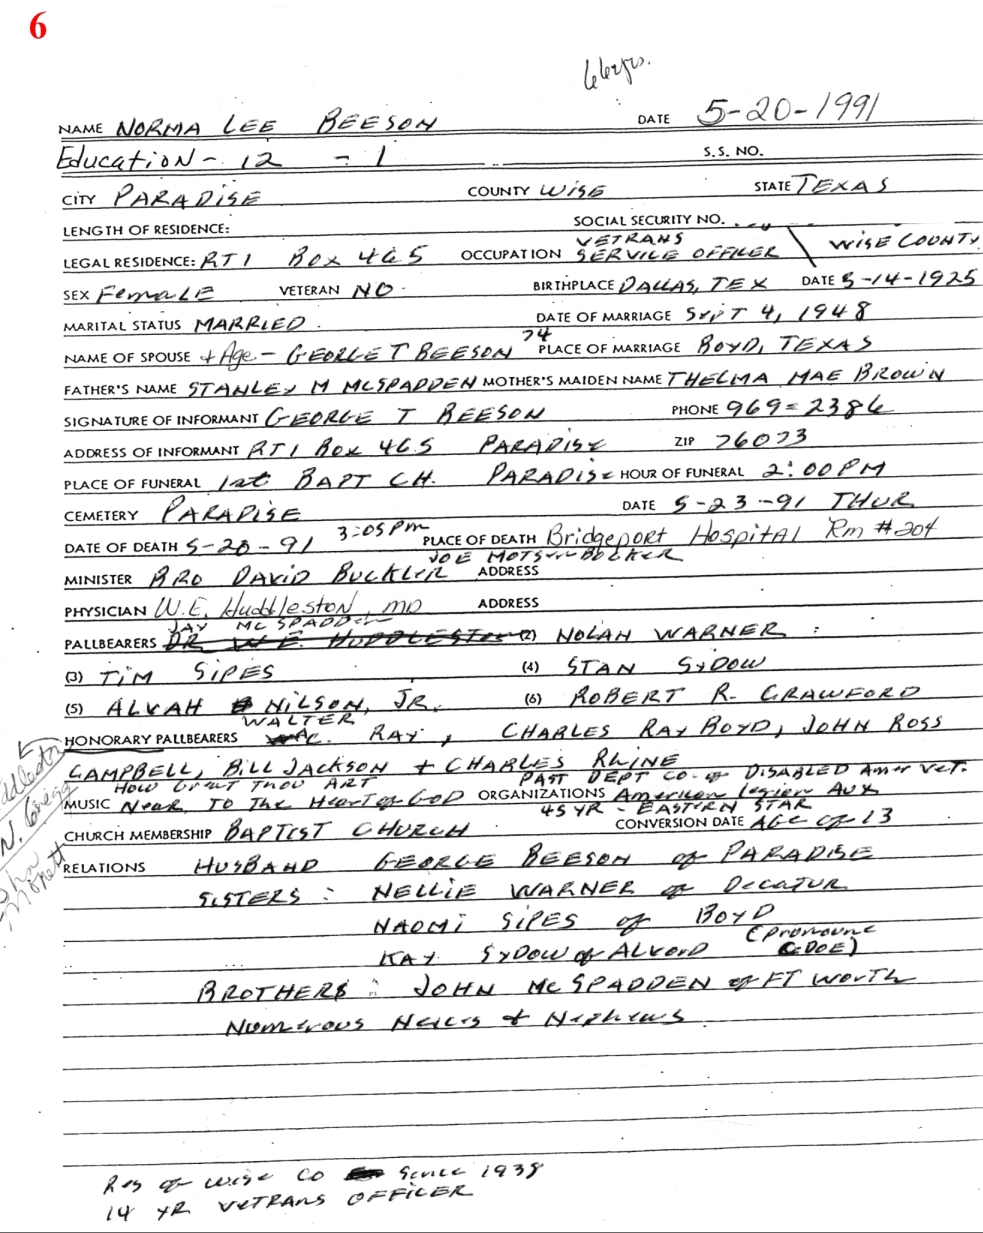 6
66 yrs.
NAME NORMA LEE BEESON DATE 5-20-1991
Education - 12 - 1 S.S. NO.
CITY PARADISE COUNTY WISE STATE TEXAS
LENGTH OF RESIDENCE: SOCIAL SECURITY NO.
LEGAL RESIDENCE: RT 1 Box 465 OCCUPATION VETRANS SERVICE OFFICER \ WISE COUNTY
SEX FEMALE VETERAN NO BIRTHPLACE DALLAS, TEX DATE 5-14-1925
MARITAL STATUS MARRIED DATE OF MARRIAGE SEPT 4, 1948
NAME OF SPOUSE + Age - GEORGE T BEESON 74 PLACE OF MARRIAGE BOYD, TEXAS
FATHER'S NAME STANLEY M McSPADDEN MOTHER'S MAIDEN NAME THELMA MAE BROWN
SIGNATURE OF INFORMANT GEORGE T BEESON PHONE 969-2386
ADDRESS OF INFORMANT RT 1 Box 465 PARADISE ZIP 76073
PLACE OF FUNERAL 1st BAPT CH. PARADISE HOUR OF FUNERAL 2:00 PM
CEMETERY PARADISE DATE 5-23-91 THUR
DATE OF DEATH 5-20-91 3:05 pm PLACE OF DEATH Bridgeport Hospital Rm #204
JOE
MINISTER BRO DAVID BUCKLER ADDRESS
PHYSICIAN W.E. Huddleston, MD ADDRESS
JAY McSPADDEN
PALLBEARERS DR W.E. HUDDLESTON (2) NOLAN WARNER
(3) TIM SIPES (4) STAN SYDOW
(5) ALVAH NILSON, JR. (6) ROBERT R. CRAWFORD
WALTER
HONORARY PALLBEARERS RAY, CHARLES RAY BOYD, JOHN ROSS
CAMPBELL, BILL JACKSON + CHARLES RHINE
HOW GREAT THOU ART PAST DEPT CO- of DISABLED Amer Vet.
MUSIC NEAR TO THE HEART of GOD ORGANIZATIONS American Legion AUX
45 YR - EASTERN STAR
CHURCH MEMBERSHIP BAPTIST CHURCH CONVERSION DATE AGE of 13
RELATIONS HUSBAND GEORGE BEESON of PARADISE
SISTERS: NELLIE WARNER of DECATUR
NAOMI SIPES of BOYD
KAY SYDOW of ALVORD (Pronounc CDOE)
BROTHERS: JOHN McSPADDEN of FT WORTH
NUMEROUS NEICES + NEPHEWS
RES of WISE CO SINCE 1938
14 YR VETRANS OFFICER